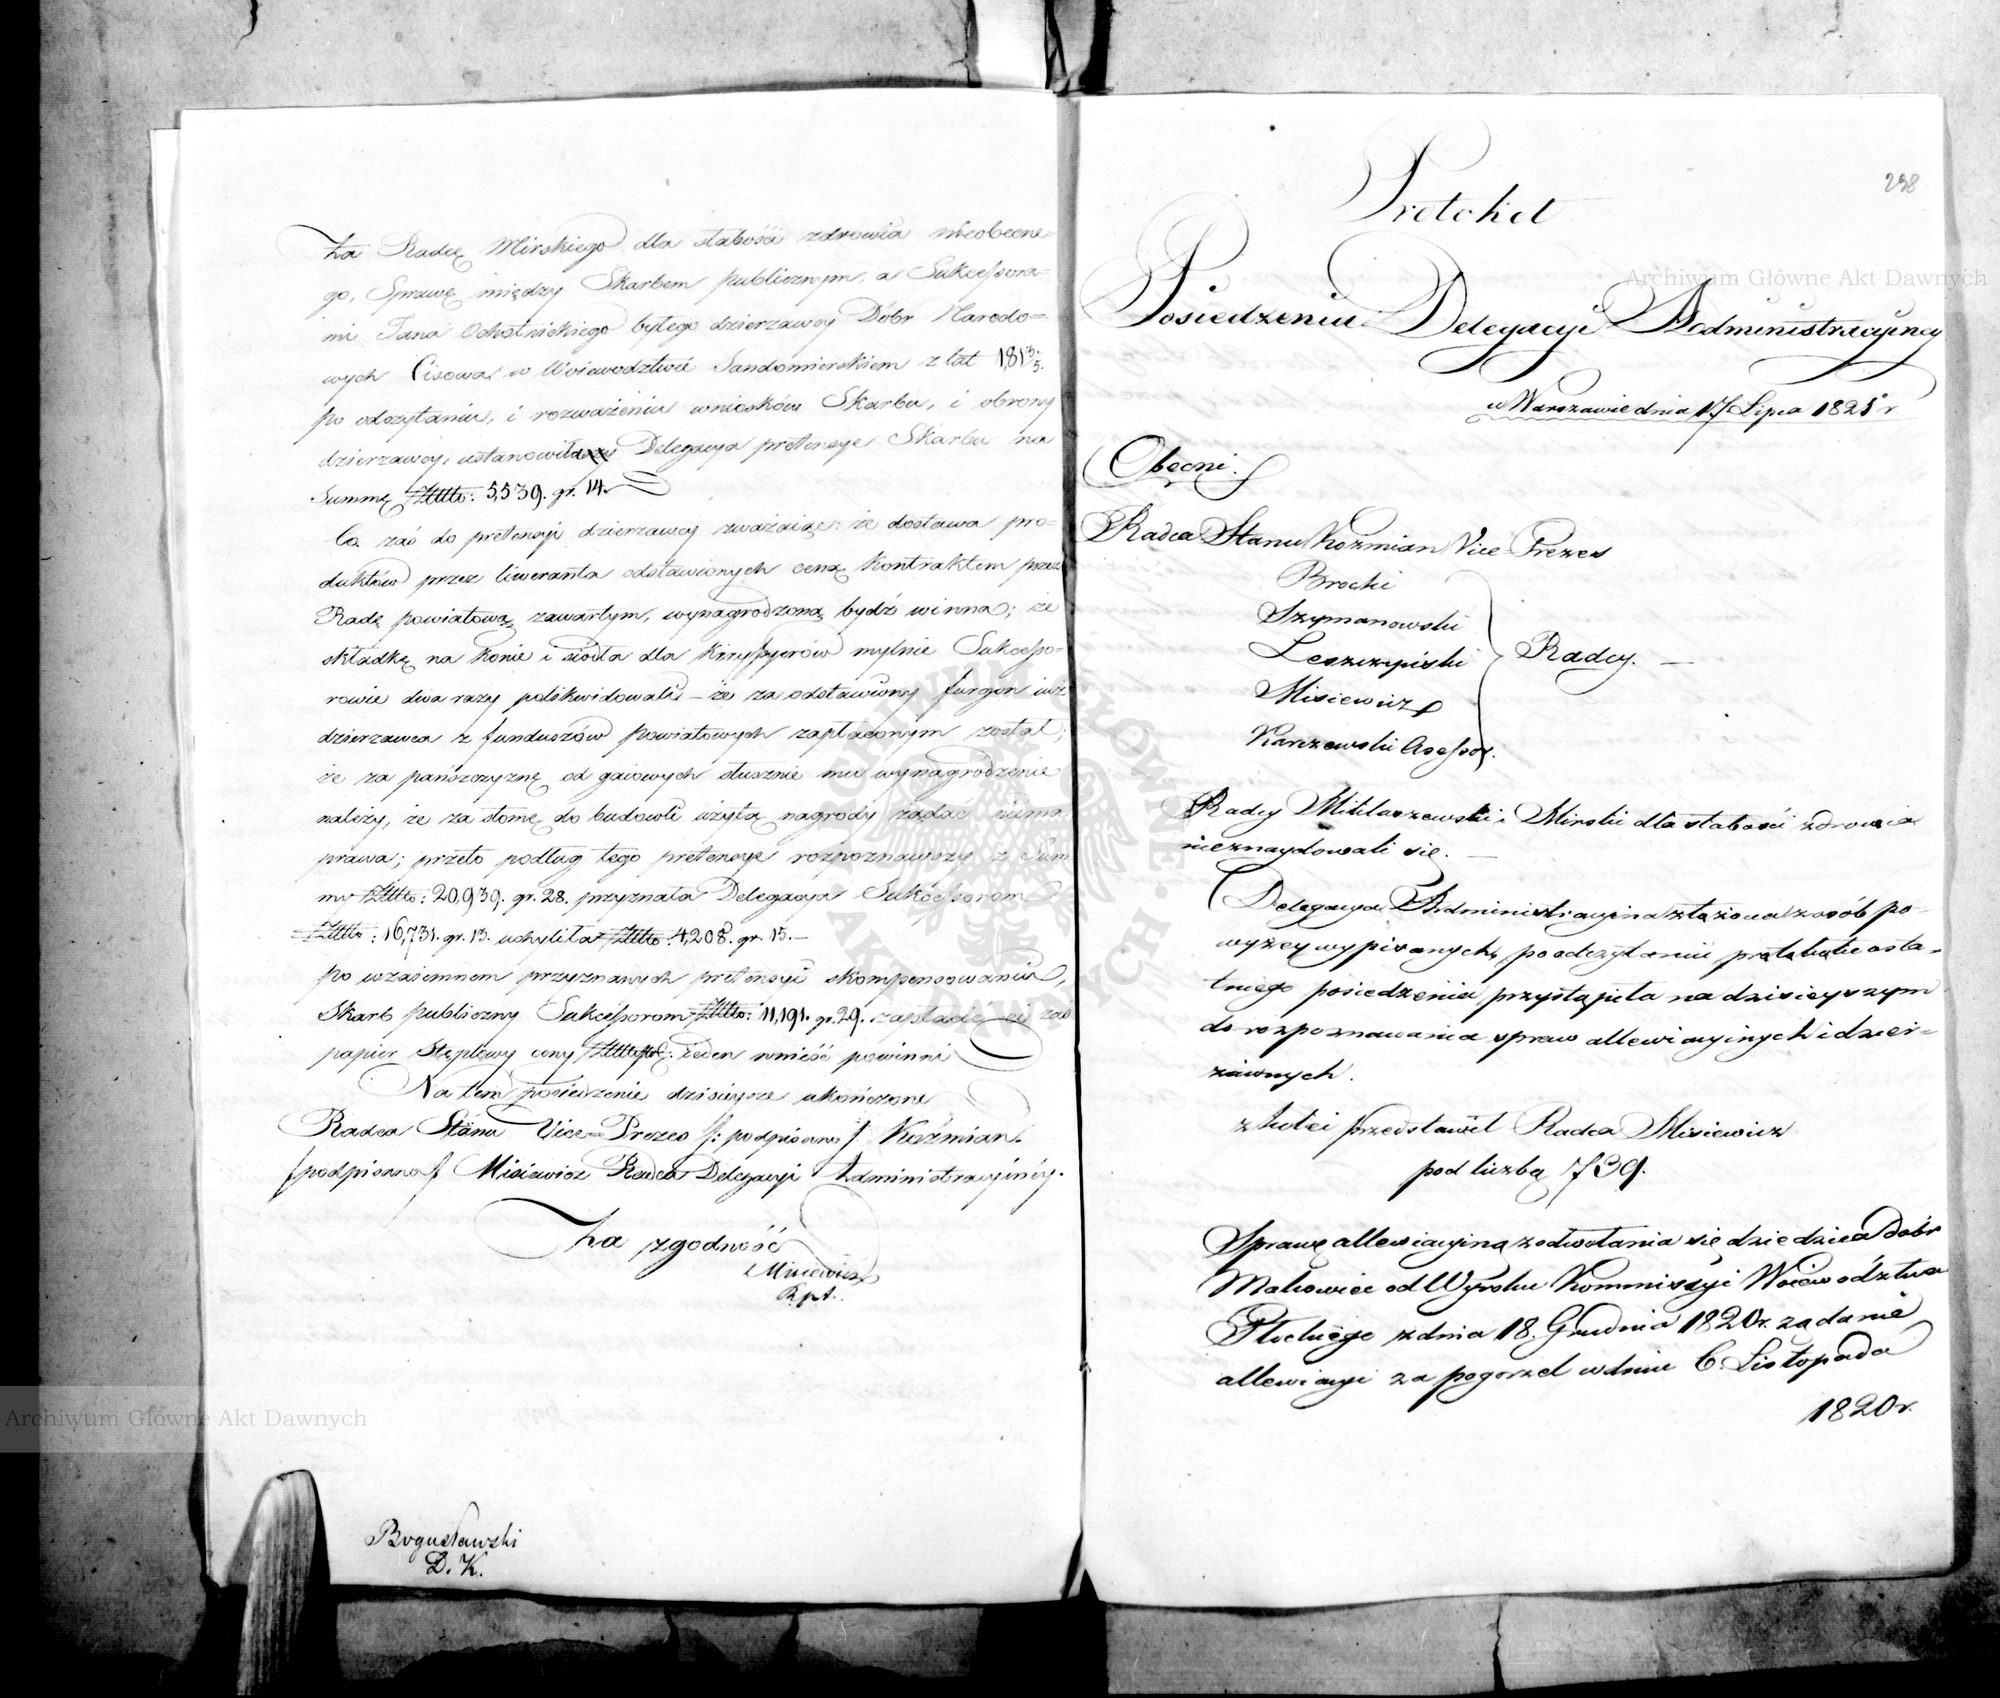 Za Radcę Mirskiego dla słabości zdrowia nieobecne=
go, Sprawę między Skarbem publicznym, a Sukcessora=
mi Jana Ochotnickiego byłego dzierzawcy Dóbr Narodo=
wych Cisowa w Woiewodztwie Sandomierskiem z lat 1813/5.
po odczytaniu, i rozważeniu wniosków Skarbu, i obrony
dzierzawcy, ustanowiła Delegacya pretensye Skarbu na
Summę Złotto: 5,539. gr. 14.
Co zaś do pretensyi dzierzawcy zważaiąc: że dostawa pro=
duktów przez liweranta odstawionych ceną kontraktem przez
Radę powiatową zawartym, wynagrodzoną bydź winna; że
składkę na konie i siodła dla Kirysyerów mylnie Sukcesso=
rowie dwa razy polikwidowali – że za odstawiony furgon iuż
dzierzawca z funduszów powiatowych zapłaconym został;
że za pańszczyznę od gaiowych słusznie mu wynagrodzenie
należy, że za słomę do budowli użytą nagrody żądać niema
prawa; przeto podług tego pretensye rozpoznawszy z Sum
my Złotto: 20,939. gr. 28. przyznała Delegacya Sukcessorom
Złotto: 16,731. gr. 13. uchyliła Złotto: 4,208. gr. 15. –
po wzaiemnem przyznanych pretensyi skompensowaniu,
Skarb publiczny Sukcessorom Złotto: 11,191. gr. 29. zapłacić, ci zaś
papier Stęplowy ceny ieden wnieść powinni
Na tem posiedzenie dzisieysze ukończone
Radca Stanu Vice=Prezes /: podpisano / Koźmian.
/podpisano/ Misiewicz Radca Delegacyi Administracyiney.
Za zgodność
Misiewicz
Rpt.
Bogusławski
D. K.
298
Protokół
Posiedzenia Delegacyi Administracyiney
w Warszawie dnia 17 Lipca 1825 r
Obecni.
Radca Stanu Koźmian Vice Prezes
Brocki
Szymanowski
Leszczyński Radcy. –
Misiewicz
Karszewski Asessor.
Radcy Miklaszewski i Mirski dla słabości zdrowia
nieznaydowali się. –
Delegacya Administracyina złożona z osób po-
wyżey wypisanych, po odczytaniu protokułu osta-
tniego posiedzenia przystąpiła na dzisieyszym
do rozpoznawania spraw allewiacyinych i dzier-
żawnych.
z kolei przedstawił Radca Misiewicz
pod liczbą 739.
Sprawę allewiacyiną z odwołania się dziedzica Dóbr
Makowice od Wyroku Kommissyi Woiewództwa
Płockiego z dnia 18. Grudnia 1820 r. żądanie
allewiacyi za pogorzel w dniu 6. Listopada
1820 r.
Archiwum Główne Akt Dawnych
Archiwum Główne Akt Dawnych
ARCHIWUM GŁÓWNE AKT DAWNYCH